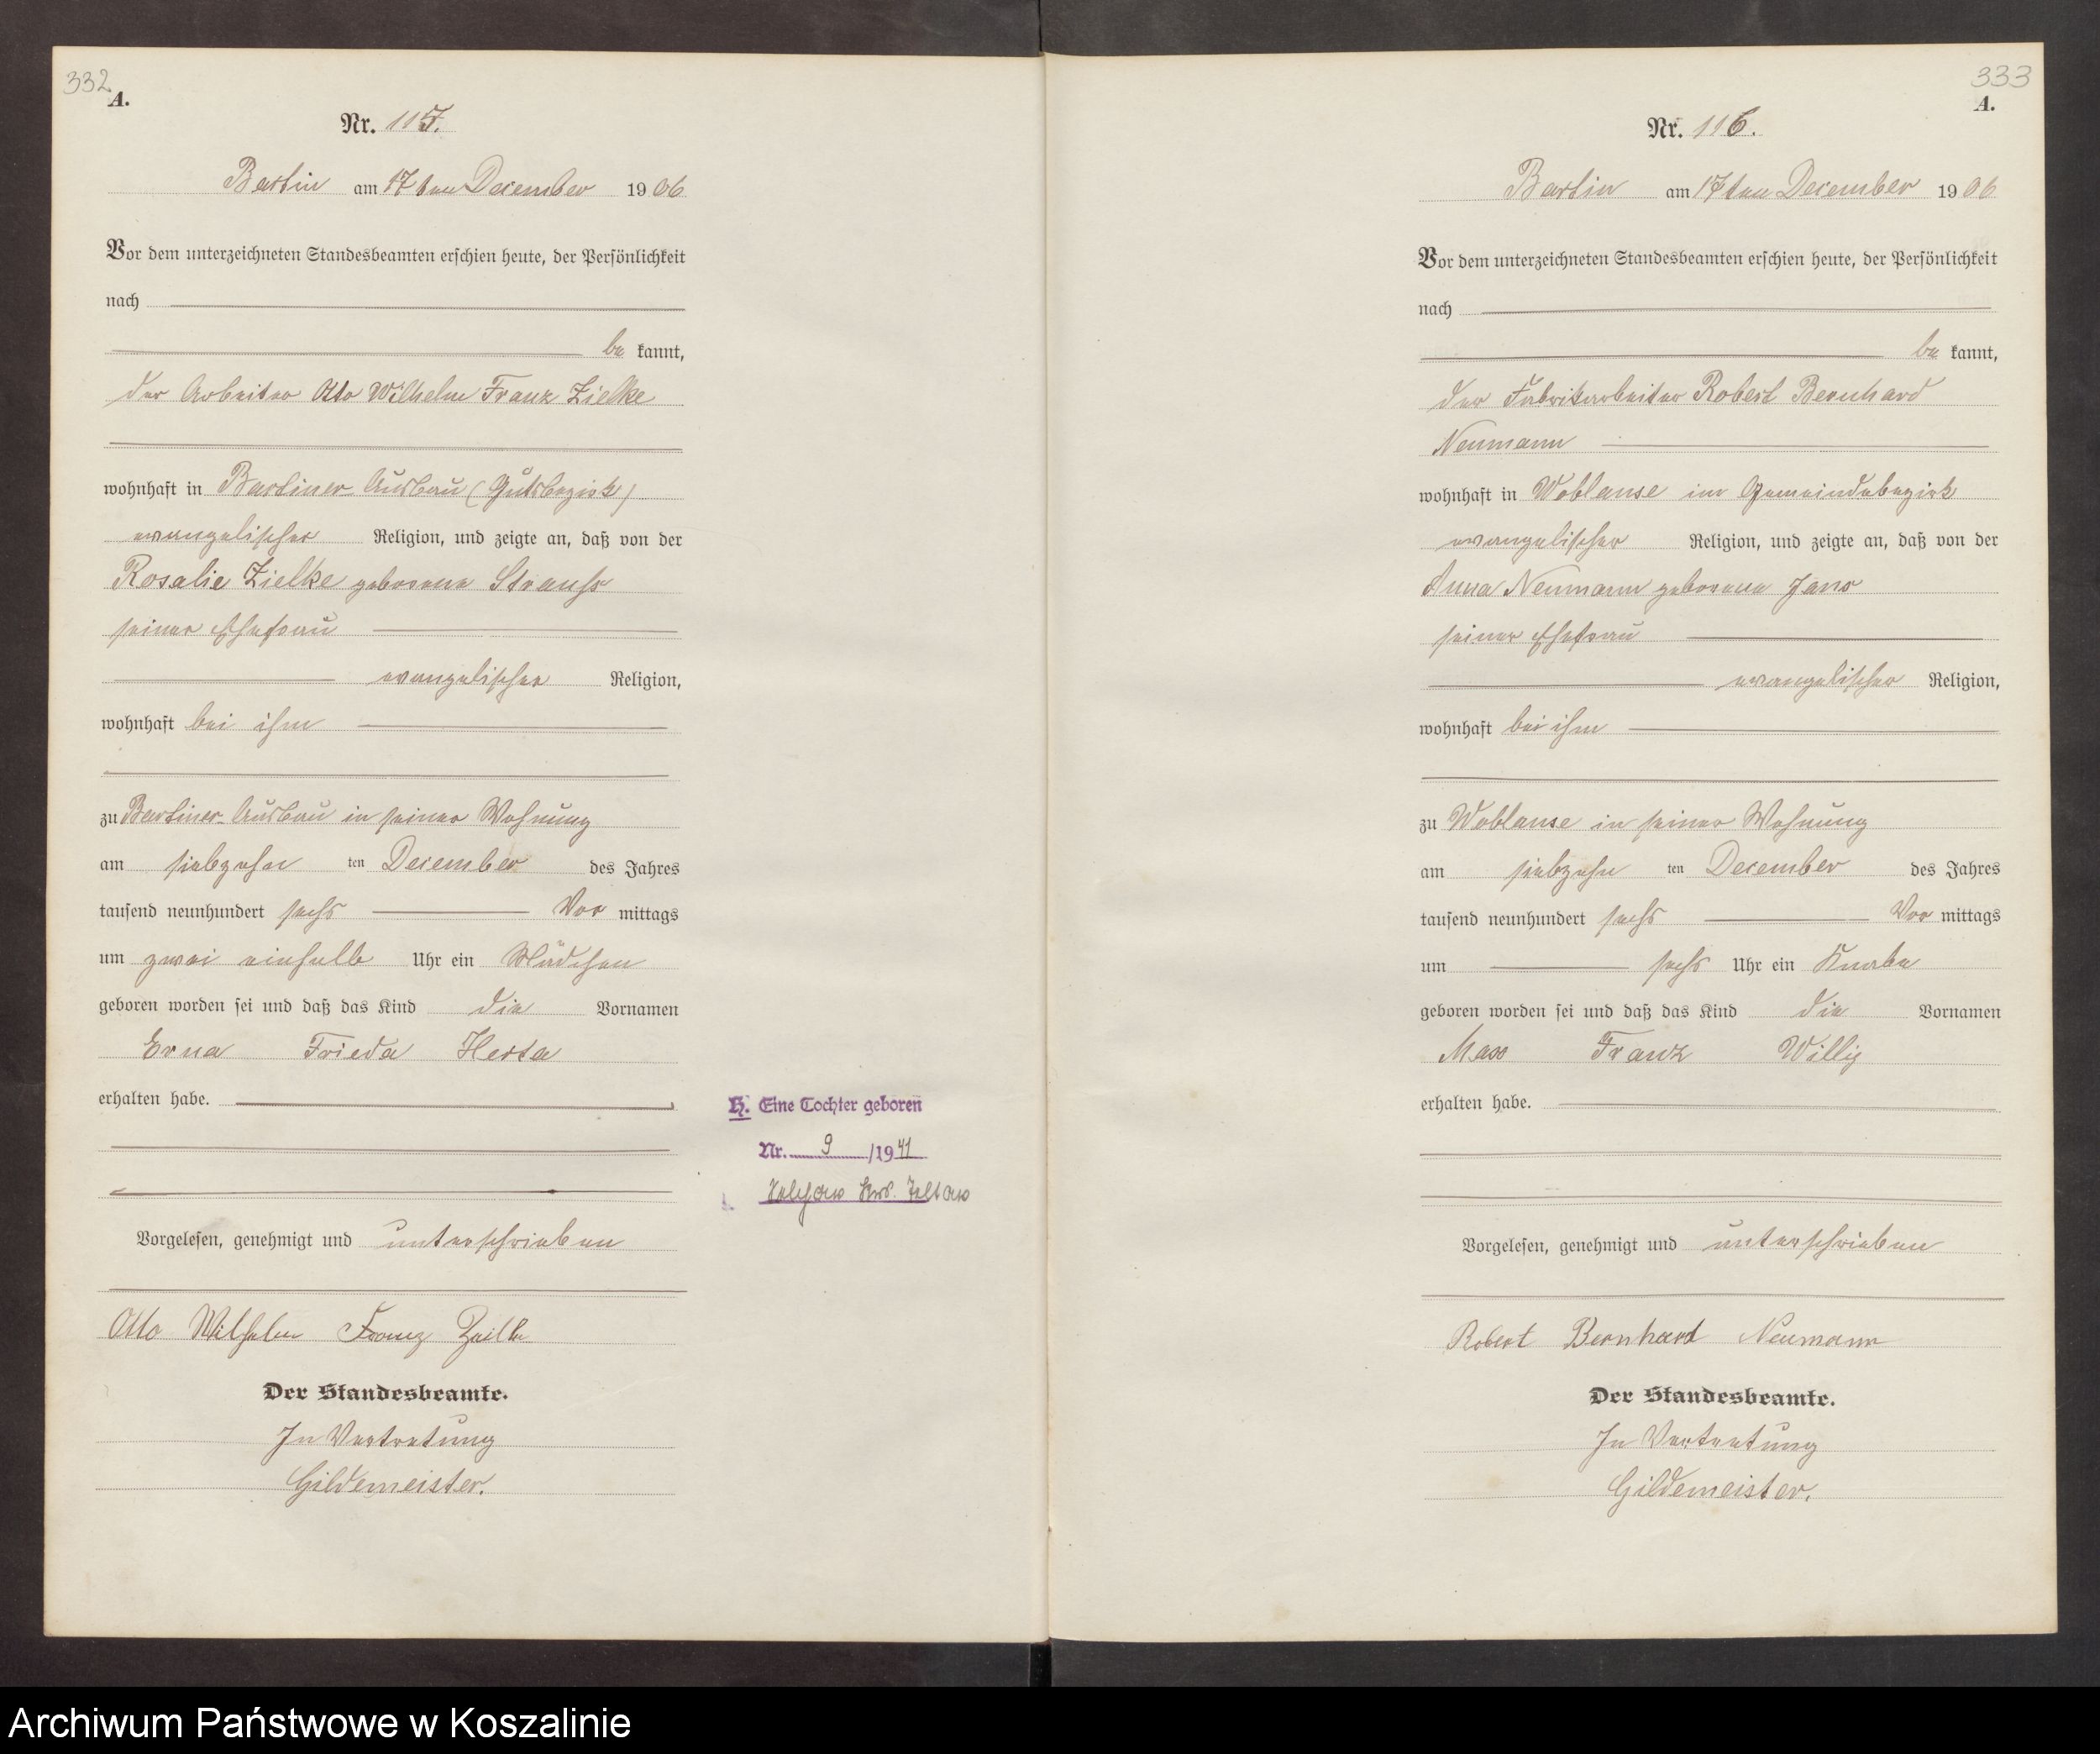 332
A.
Nr. 115.
Bartin am 17ten December 1906
Vor dem unterzeichneten Standesbeamten erschien heute, der Persönlichkeit
nach
be kannt,
der Arbeiter Otto Wilhelm Franz Zielke
wohnhaft in Bartiner Ausbau (Gutsbezirk)
evangelischer Religion, und zeigte an, daß von der
Rosalie Zielke geborene Strauss
seiner Ehefrau
evangelischer Religion,
wohnhaft bei ihm
zu Bartiner-Ausbau in seiner Wohnung
am siebzehn ten December des Jahres
tausend neunhundert sechs Vor mittags
um zwei einhalb Uhr ein Mädchen
geboren worden sei und daß das Kind die Vornamen
Erna Frieda Herta
erhalten habe.
Vorgelesen, genehmigt und unterschrieben
Otto Wilhelm Franz
Der Standesbeamte.
In Vertretung
Gildemeister.
H. Eine Tochter geboren
Nr. 9 /1941
Teltow
333
A.
Nr. 116.
Bartin am 17ten December 1906
Vor dem unterzeichneten Standesbeamten erschien heute, der Persönlichkeit
nach
be kannt,
der Fabrikarbeiter Robert Bernhard
Neumann
wohnhaft in Woblanse im Gemeindebezirk
evangelischer Religion, und zeigte an, daß von der
Anna Neumann geborene
seiner Ehefrau
evangelischer Religion,
wohnhaft bei ihm
zu Woblanse in seiner Wohnung
am siebzehn ten December des Jahres
tausend neunhundert sechs Vor mittags
um sechs Uhr ein Knabe
geboren worden sei und daß das Kind die Vornamen
Max Franz Willy
erhalten habe.
Vorgelesen, genehmigt und unterschrieben
Robert Bernhard Neumann
Der Standesbeamte.
In Vertretung
Gildemeister.
Archiwum Państwowe w Koszalinie